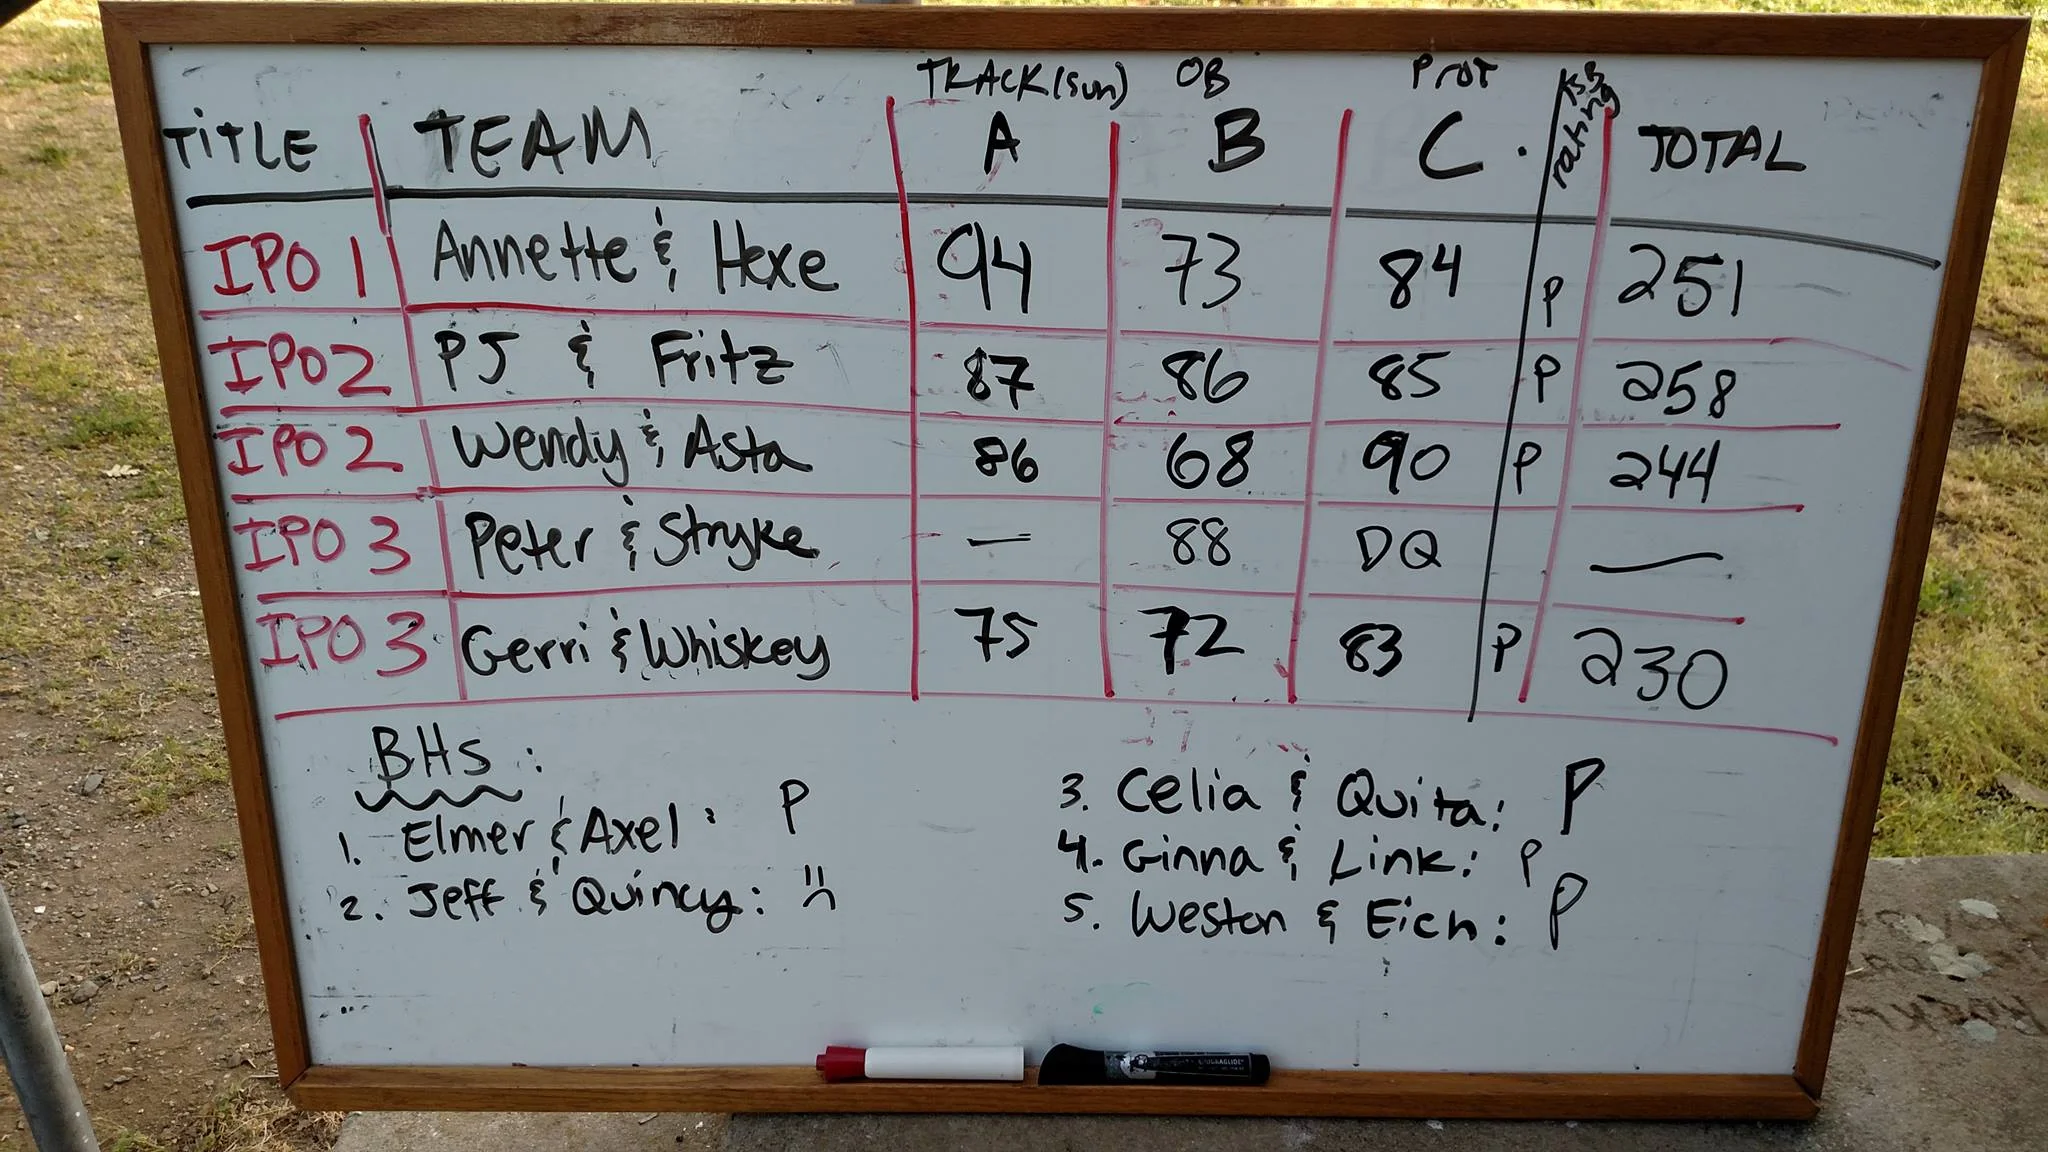 TRACK(sun) OB PROT
TITLE TEAM A B C. TSB rating TOTAL
IPO 1 Annette & Hexe 94 73 84 P 251
IPO2 PJ & Fritz 87 86 85 P 258
IPO 2 Wendy & Asta 86 68 90 P 244
IPO 3 Peter & Stryke — 88 DQ —
IPO 3 Gerri & Whiskey 75 72 83 P 230
BHs:
1. Elmer & Axel: P
2. Jeff & Quincy: :(
3. Celia & Quita: P
4. Ginna & Link: P
5. Weston & Eich: P